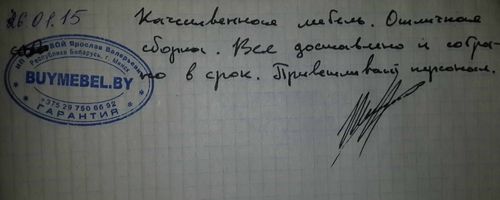 26.01.15
Качественная мебель. Отличная
сборка. Все доставлено и собра-
но в срок. Приветливый персонал.
Ярослав Валерьевич
Республика Беларусь, г. Минск
BUYMEBEL.BY
+375 29 750 66 92
ГАРАНТИЯ